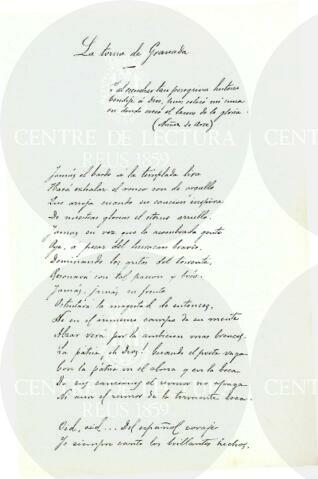 La toma de Granada
Y al escuchar tan peregrina historia
bendije á Dios, pues colocó mi cuna
en donde creció el lauro de la gloria.
(Nuñez de Arce)
Jamás el bardo a la templada lira
Hará exhalar el ronco son de orgullo
Que arroja cuando su canción inspira
De nuestras glorias el eterno arrullo.
Jamás su voz que la asombrada gente
Oye, a pesar del huracan bravío
Dominando los gritos del torrente,
Resonará con tal pasion y brío.
Jamás, jamás su frente
Ostentará la magestad de entonces,
Ni en el inmenso campo de su mente
Alzar verá por la ambicion mas bronces.
¡La patria, oh Dios! Cuando el poeta vaga
Con la patria en el alma y en la boca
De sus canciones el rumor no apaga
Ni aun el rumor de la tormenta loca.
Oid, oid... Del español coraje
Yo siempre canto los brillantes hechos.
CENTRE DE LECTURA
REUS 1859